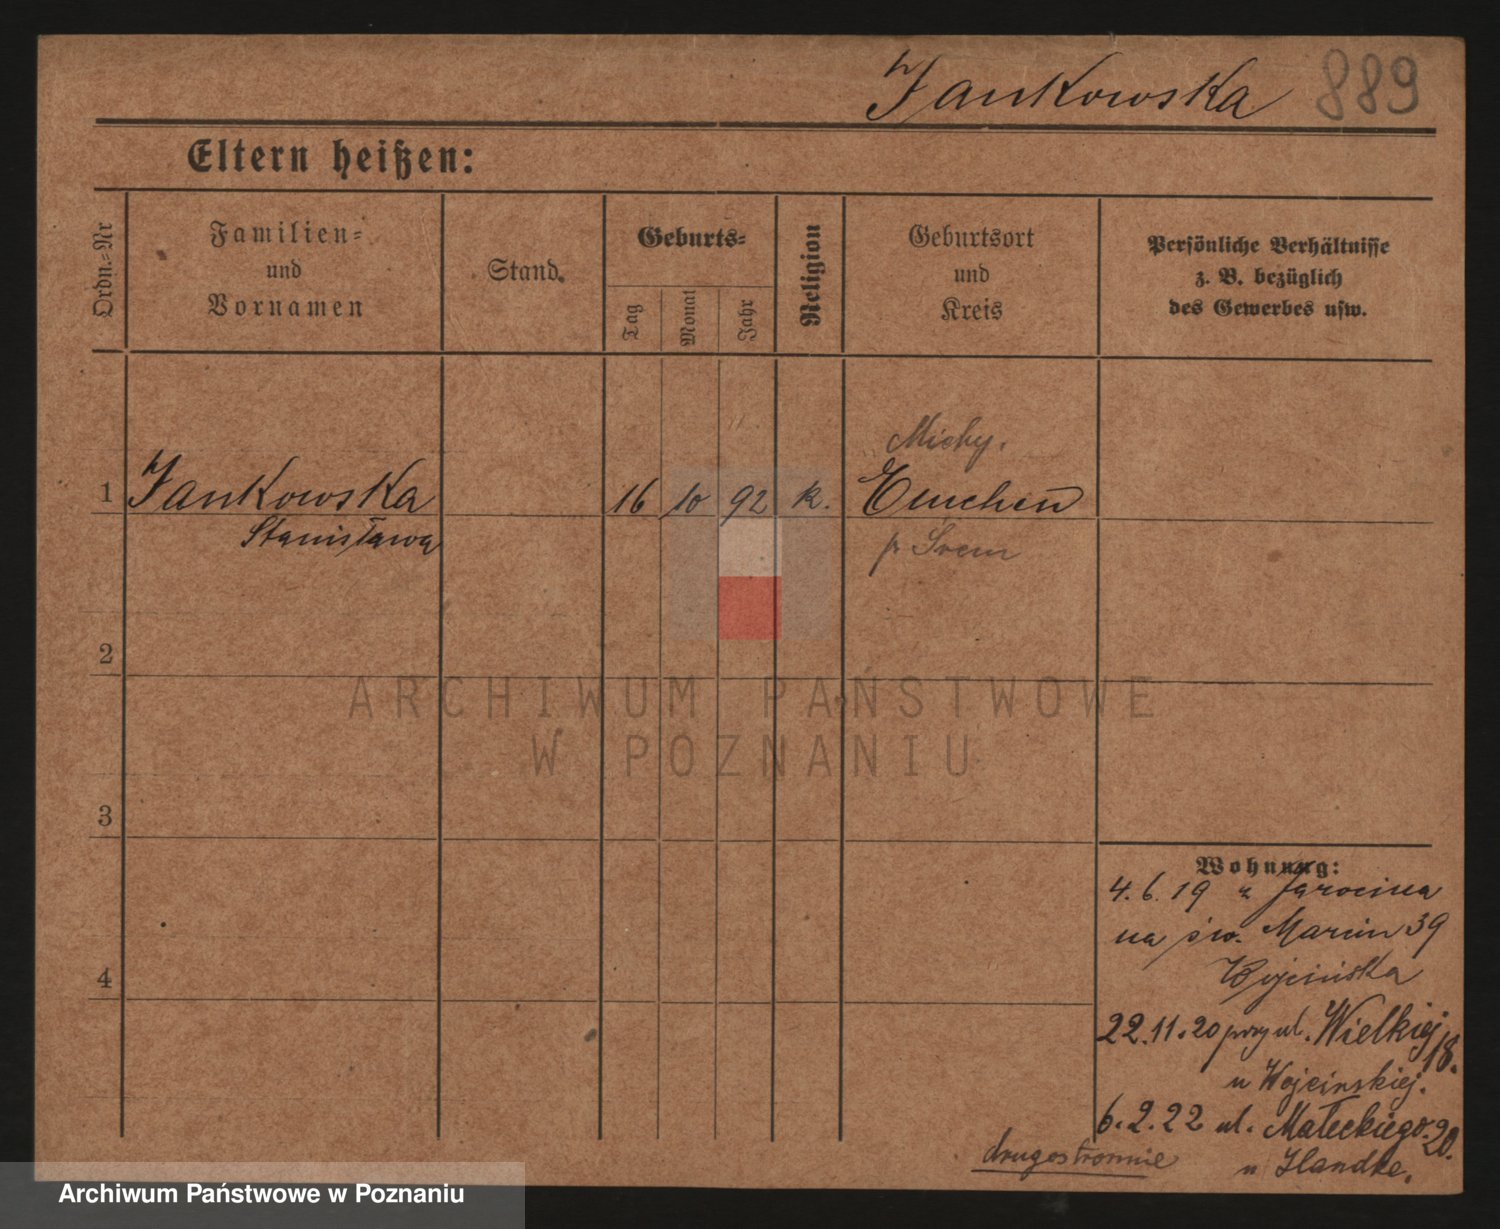 Jankowska 889
Eltern heißen:
Ordn.-Nr
Familien-
und
Vornamen
Stand.
Geburts-
Tag
Monat
Jahr
Religion
Geburtsort
und
Kreis
Persönliche Verhältnisse
z. B. bezüglich
des Gewerbes usw.
1 Jankowska 16 10 92 k.
Stanisława
Emchen
p Śrem
2
3
4
ARCHIWUM PAŃSTWOWE
W POZNANIU
Wohnung:
4.6.19 z Jarocina
na św. Marcin 39
Wojcińska
22.11.20 przy ul. Wielkiej 18.
u Wojcinskiej.
6.2.22 ul. Małeckiego 20.
u Handke.
drugostronnie
Archiwum Państwowe w Poznaniu